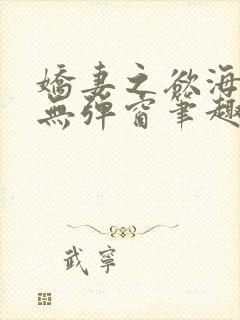 嬌妻之欲海
無彈窗筆趣
武寧